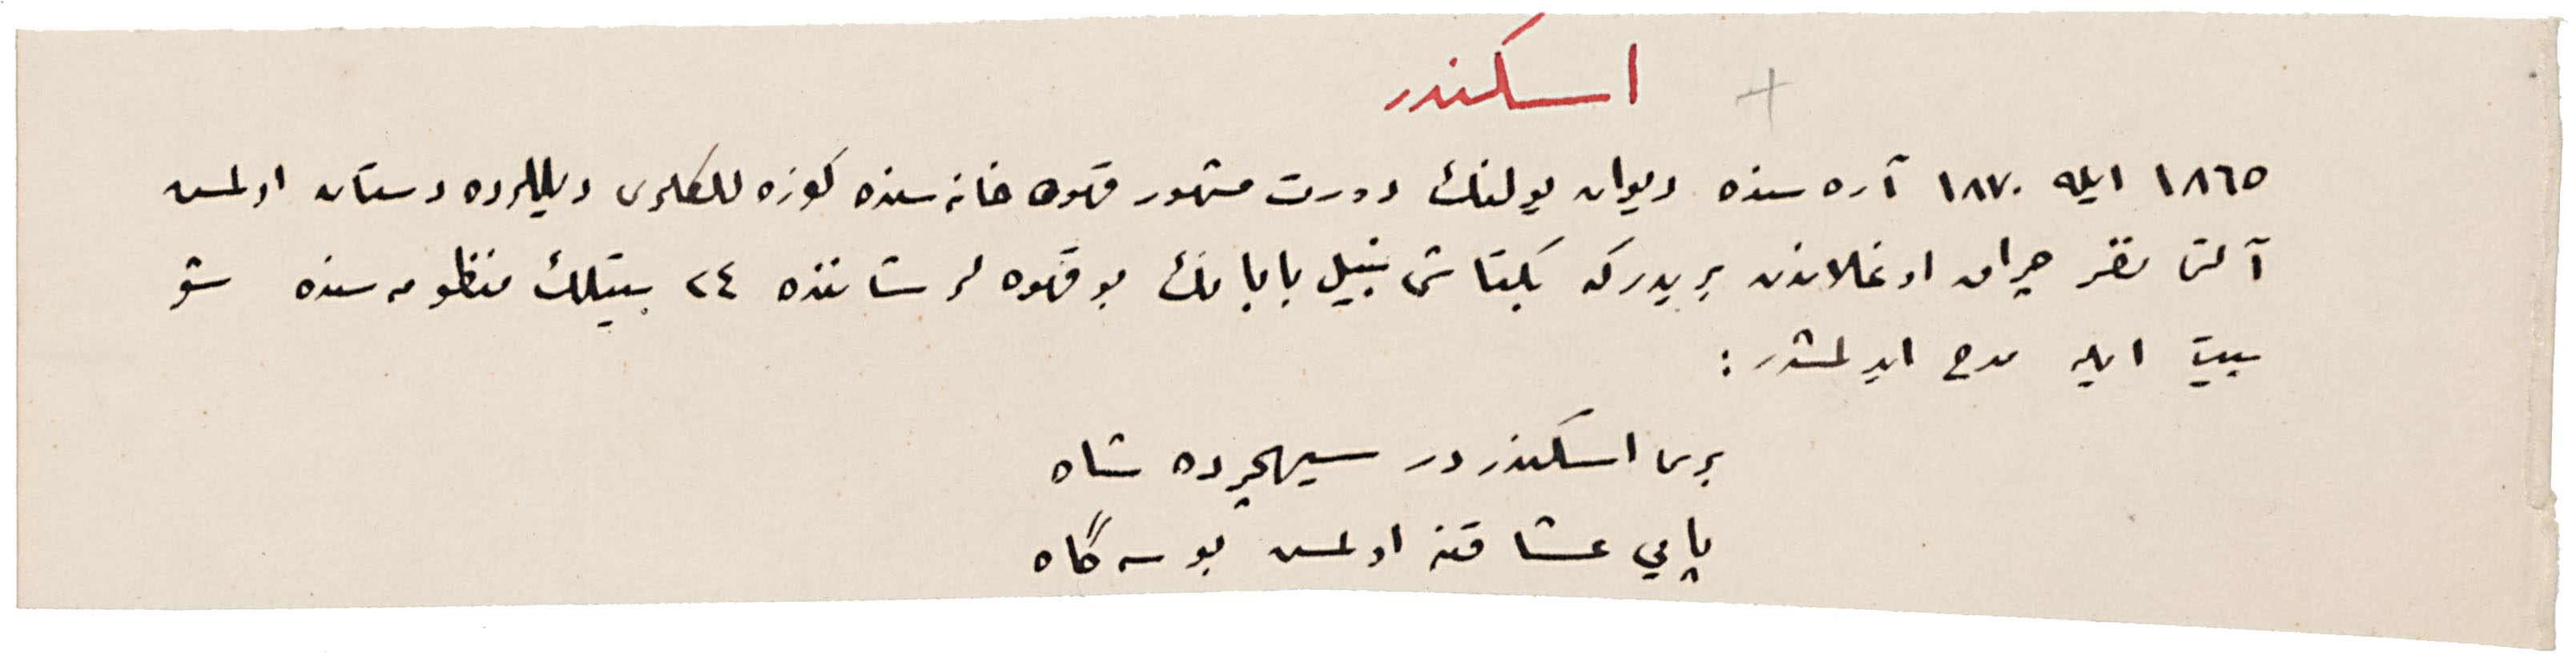 اسكندر
١٨٦٥ ايله ١٨٧٠ آره سنده ديوان يولنك دورت مشهور قهوه خانه سنده كوزه للكلرى ديللرده دستان اولمش
آلتى نفر چراق اوغلاندن بريدركه بكتاشى نبيل بابانك بو قهوه لر شاننده ٢٤ بيتلك منظومه سنده شو
بيت ايله مدح ايدلمشدر :
برى اسكندر در سيهچرده شاه
پايي عشاقنه اولمش بوسه گاه